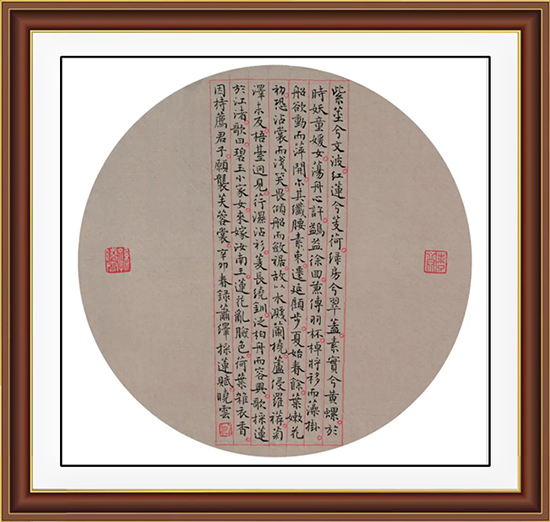 紫莖兮文波紅蓮兮芰荷綠房兮翠蓋素實兮黃螺於
時妖童媛女蕩舟心許鷁徐回兼傳羽杯棹將移而藻掛
船欲動而萍開尒其纖腰素束遷延顧步夏始春餘葉嫩花
初恐沾裳而淺笑畏傾船而斂裾故以水濺蘭橈蘆侵羅䙓菊
澤未反梧臺迥見荇濕沾衫菱長繞釧泛柏舟而容與歌採蓮
於江渚歌曰碧玉小家女來嫁汝南王蓮花亂臉色荷葉雜衣香
因持薦君子願襲芙蓉裳辛卯春錄蕭繹採蓮賦曉雲